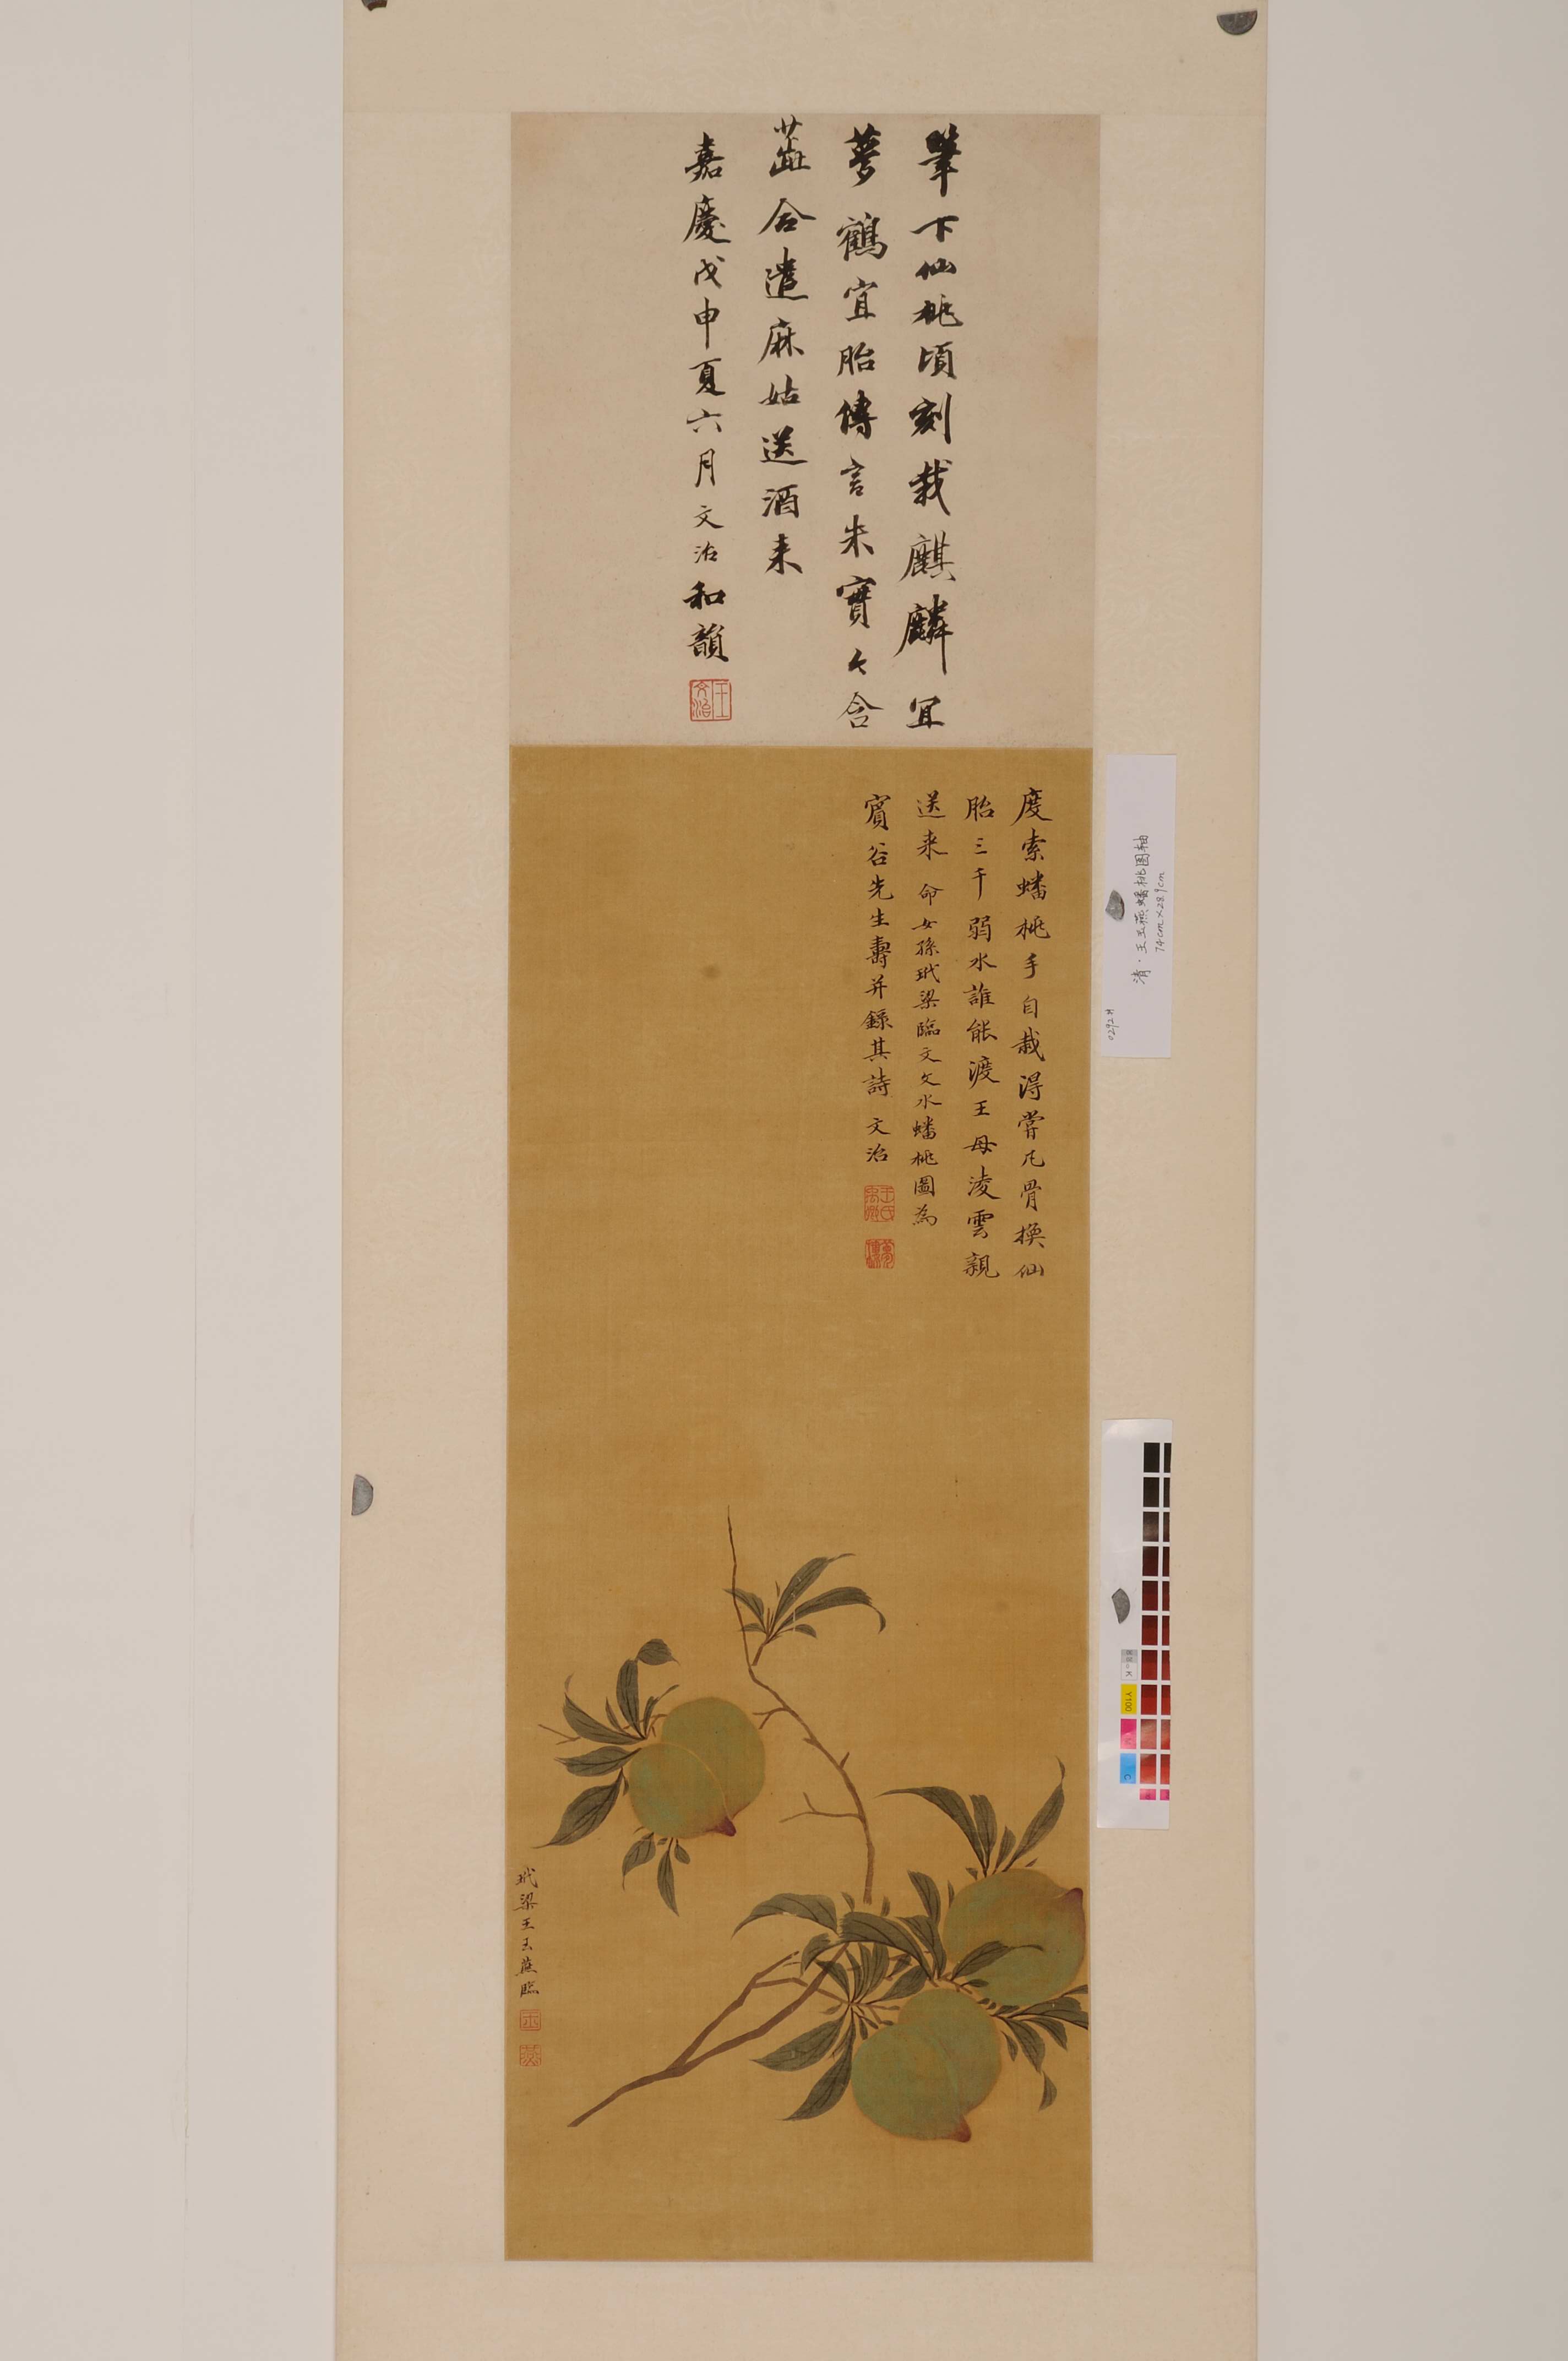 筆下仙桃頃刻栽麒麟宜
夢鶴宜胎傳言朱實々含
蕋合遣麻姑送酒来
嘉慶戊申夏六月文治和韻
王文治
度索蟠桃手自栽得嘗凡骨換仙
胎三千弱水誰能渡王母淩雲親
送来 命女孫玳梁臨文文水蟠桃圖為
賓谷先生壽并錄其詩 文治
王氏禹卿
夢樓
玳梁王玉燕臨
玉
燕
清·王玉燕蟠桃图轴
74cm×28.9cm
Y100
M
C
K